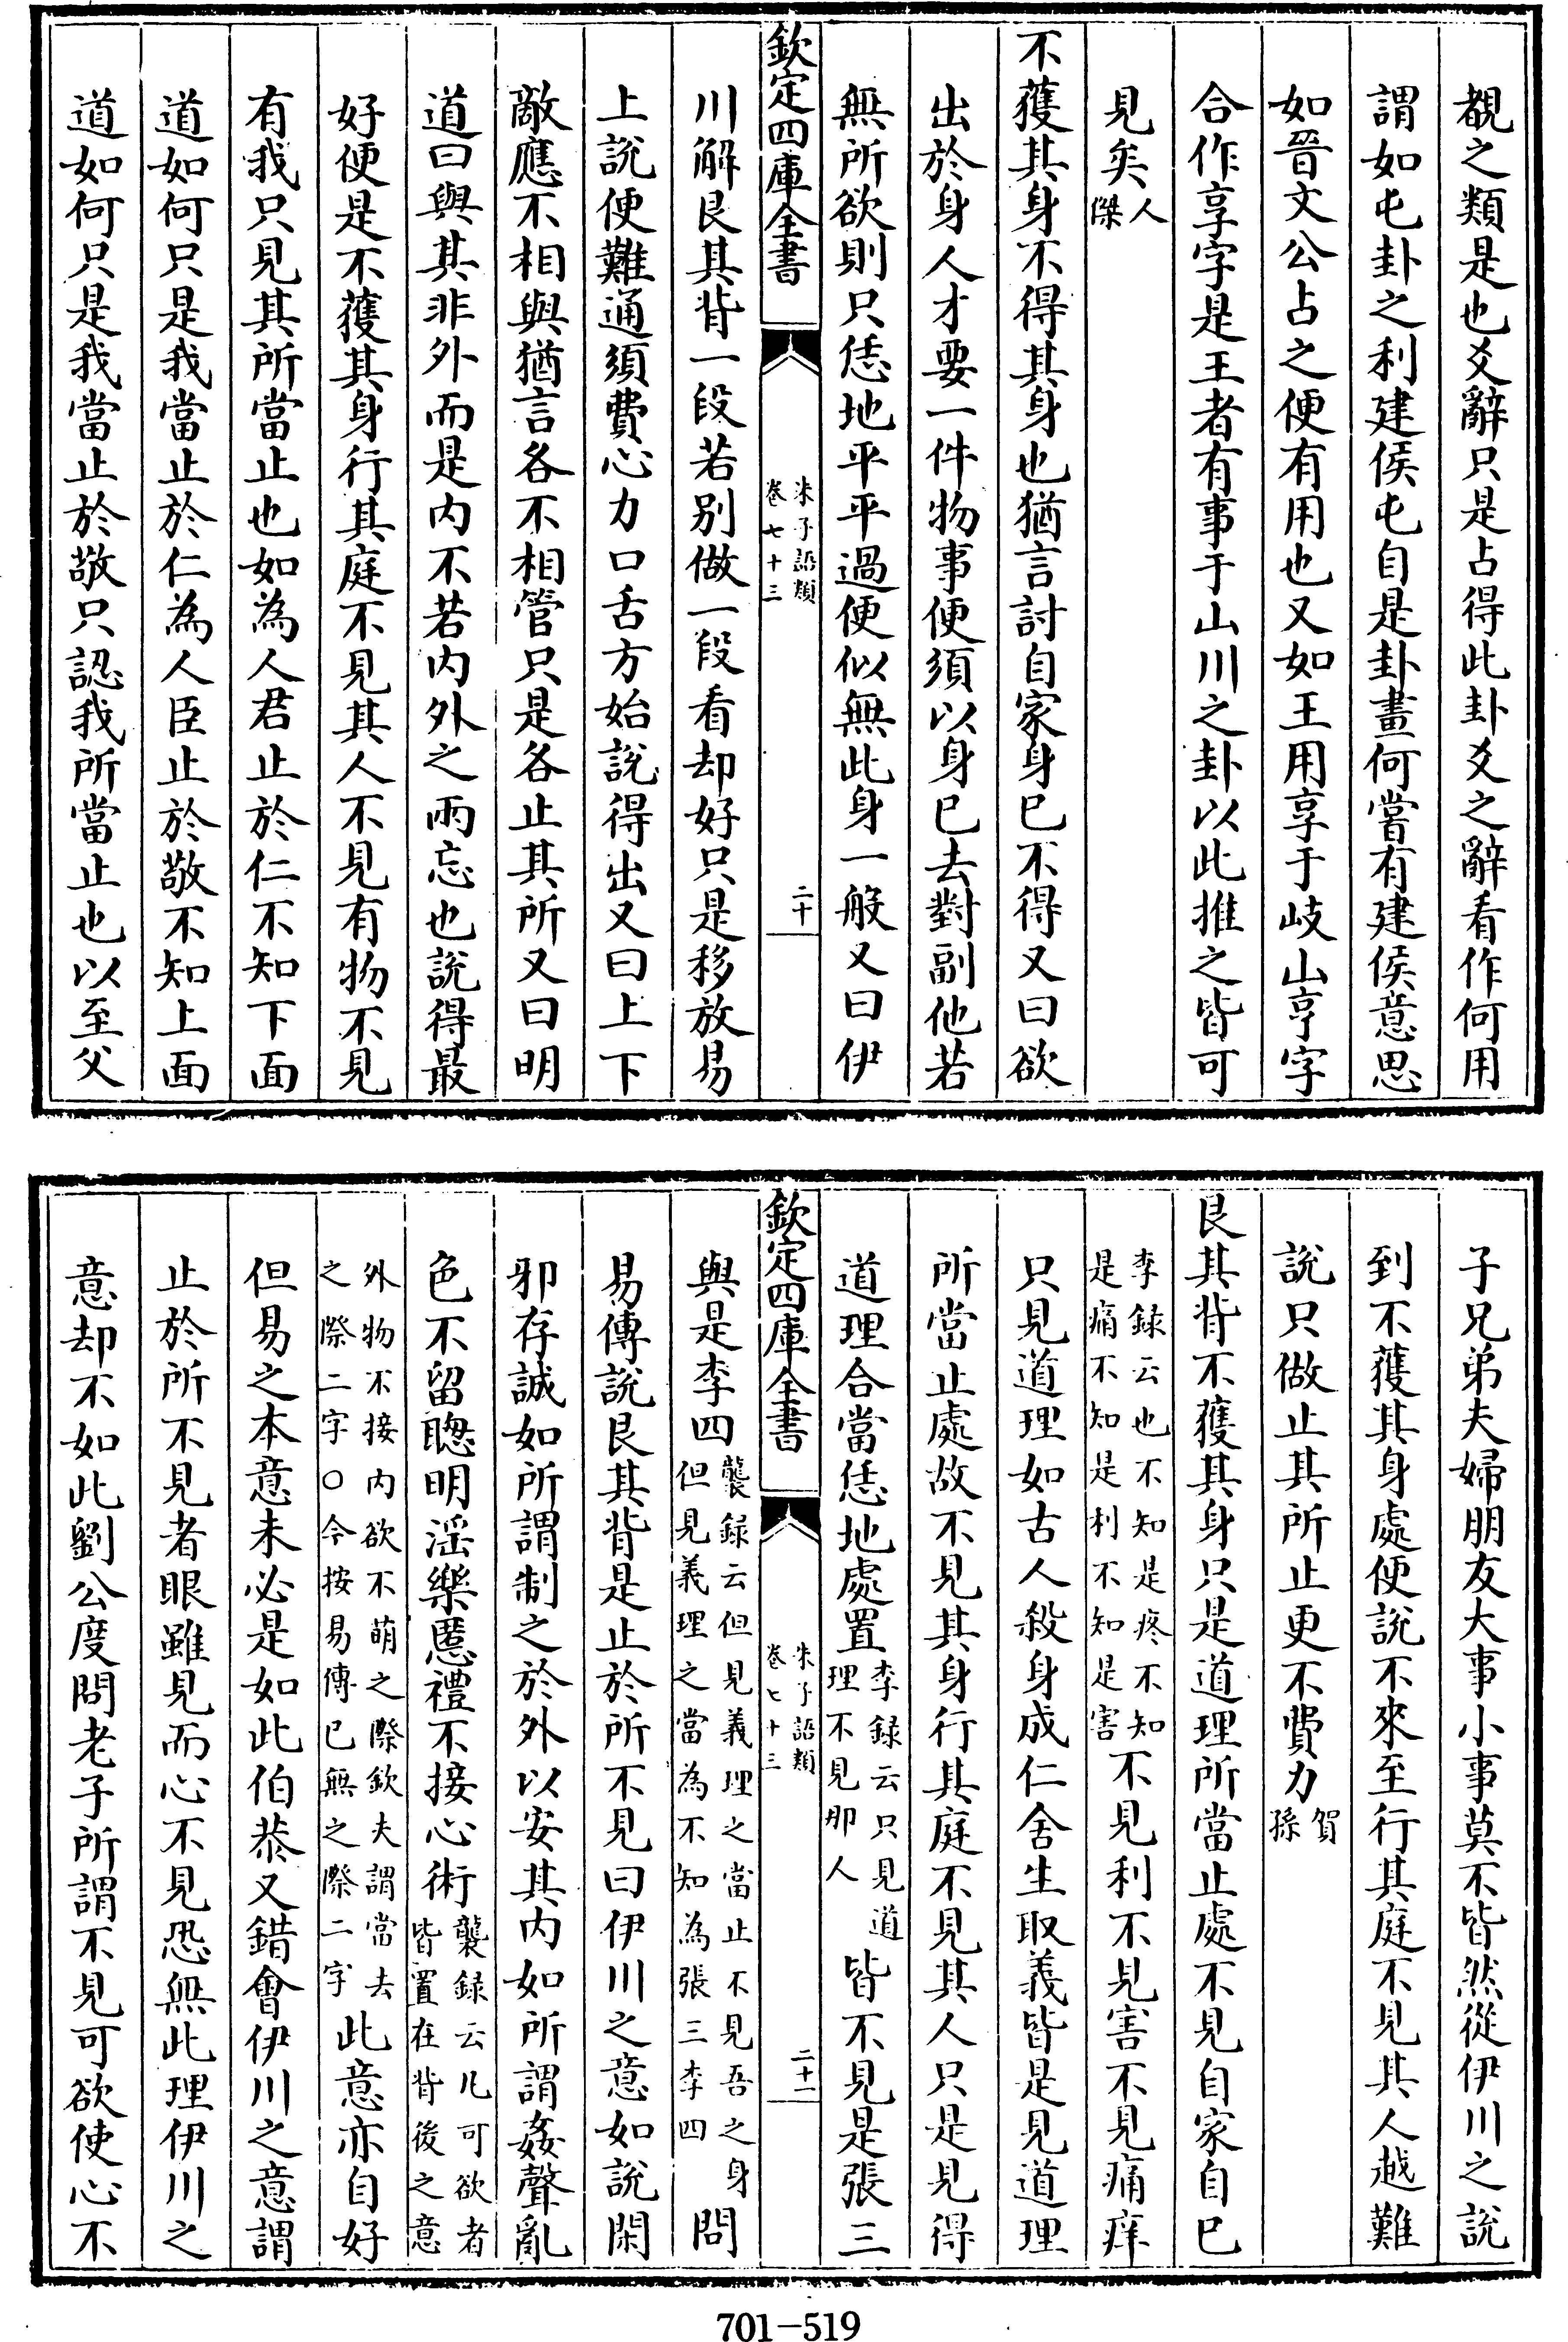 覩之類是也爻辭只是占得此卦爻之辭看作何用
謂如屯卦之利建侯屯自是卦畫何嘗有建侯意思
如晉文公占之便有用也又如王用享于岐山亨字
合作享字是王者有事于山川之卦以此推之皆可
見矣人傑
不獲其身不得其身也猶言討自家身已不得又曰欲
出於身人才要一件物事便須以身已去對副他若
無所欲則只恁地平平過便似無此身一般又曰伊
欽定四庫全書
朱子語類
卷七十三
二十
川解艮其背一段若别做一段看却好只是移放易
上說便難通須費心力口舌方始說得出又曰上下
敵應不相與猶言各不相管只是各止其所又曰明
道曰與其非外而是内不若内外之兩忘也說得最
好便是不獲其身行其庭不見其人不見有物不見
有我只見其所當止也如為人君止於仁不知下面
道如何只是我當止於仁為人臣止於敬不知上面
道如何只是我當止於敬只認我所當止也以至父
子兄弟夫婦朋友大事小事莫不皆然從伊川之說
到不獲其身處便說不來至行其庭不見其人越難
說只做止其所止更不費力賀孫
艮其背不獲其身只是道理所當止處不見自家自已
李録云也不知是疼不知
是痛不知是利不知是害
不見利不見害不見痛痒
只見道理如古人殺身成仁舍生取義皆是見道理
所當止處故不見其身行其庭不見其人只是見得
道理合當恁地處置
李録云只見道
理不見那人
皆不見是張三
欽定四庫全書
朱子語類
卷七十三
二十一
與是李四
襲録云但見義理之當止不見吾之身
但見義理之當為不知為張三李四
問
易傳說艮其背是止於所不見曰伊川之意如說閑
邪存誠如所謂制之於外以安其内如所謂姦聲亂
色不留聰明淫樂慝禮不接心術
襲録云凡可欲者
皆置在背後之意
外物不接内欲不萌之際欽夫謂當去
之際二字○今按易傳已無之際二字
此意亦自好
但易之本意未必是如此伯恭又錯會伊川之意謂
止於所不見者眼雖見而心不見恐無此理伊川之
意却不如此劉公度問老子所謂不見可欲使心不
701-519